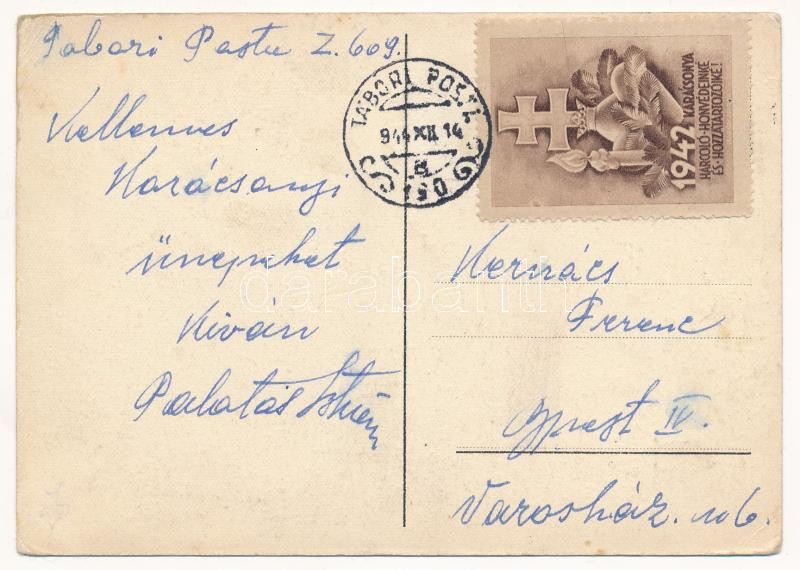 Tabori Posta Z. 609.
Kellemes
Karácsonyi
ünepeket
Kíván
Palatás István
TÁBORI POSTA
944 XII 14
a
1942 KARÁCSONYA
HARCOLÓ HONVÉDEINKÉ
ÉS HOZZÁTARTOZÓIKÉ!
Kernács
Ferenc
Ujpest IV.
Városház. u 6.
darabanth